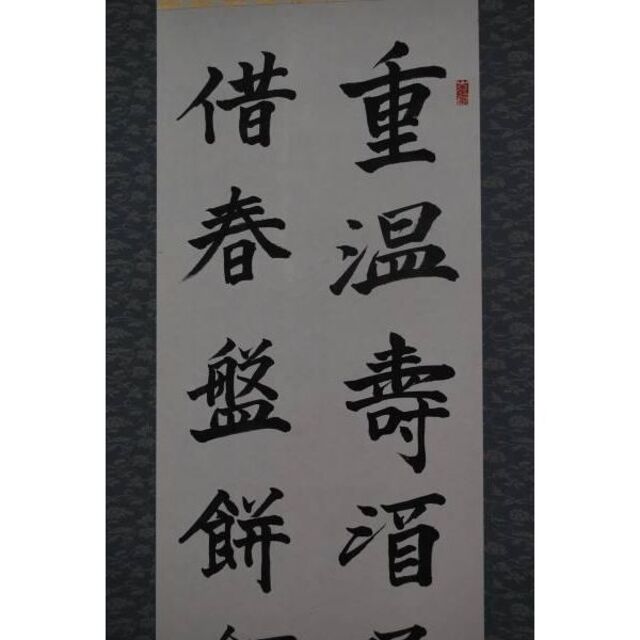 重温壽酒
借春盤餅